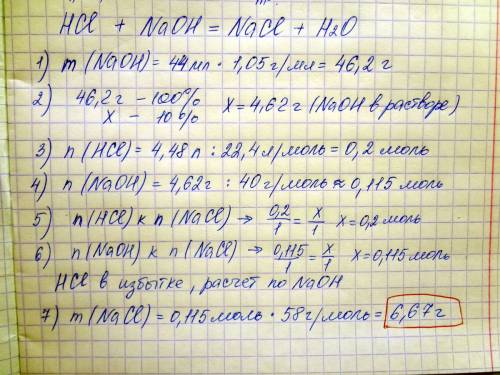 HCl + NaOH = NaCl + H2O
1) m (NaOH) = 44мл · 1,05 г/мл = 46,2 г
2) 46,2 г — 100% X = 4,62 г (NaOH в растворе)
X — 10%
3) n (HCl) = 4,48 л : 22,4 л/моль = 0,2 моль
4) n (NaOH) = 4,62 г : 40 г/моль ≈ 0,115 моль
5) n (HCl) к n (NaCl) → 0,2/1 = x/1 X = 0,2 моль
6) n (NaOH) к n (NaCl) → 0,115/1 = x/1 X = 0,115 моль
HCl в избытке, расчет по NaOH
7) m (NaCl) = 0,115 моль · 58 г/моль = 6,67 г